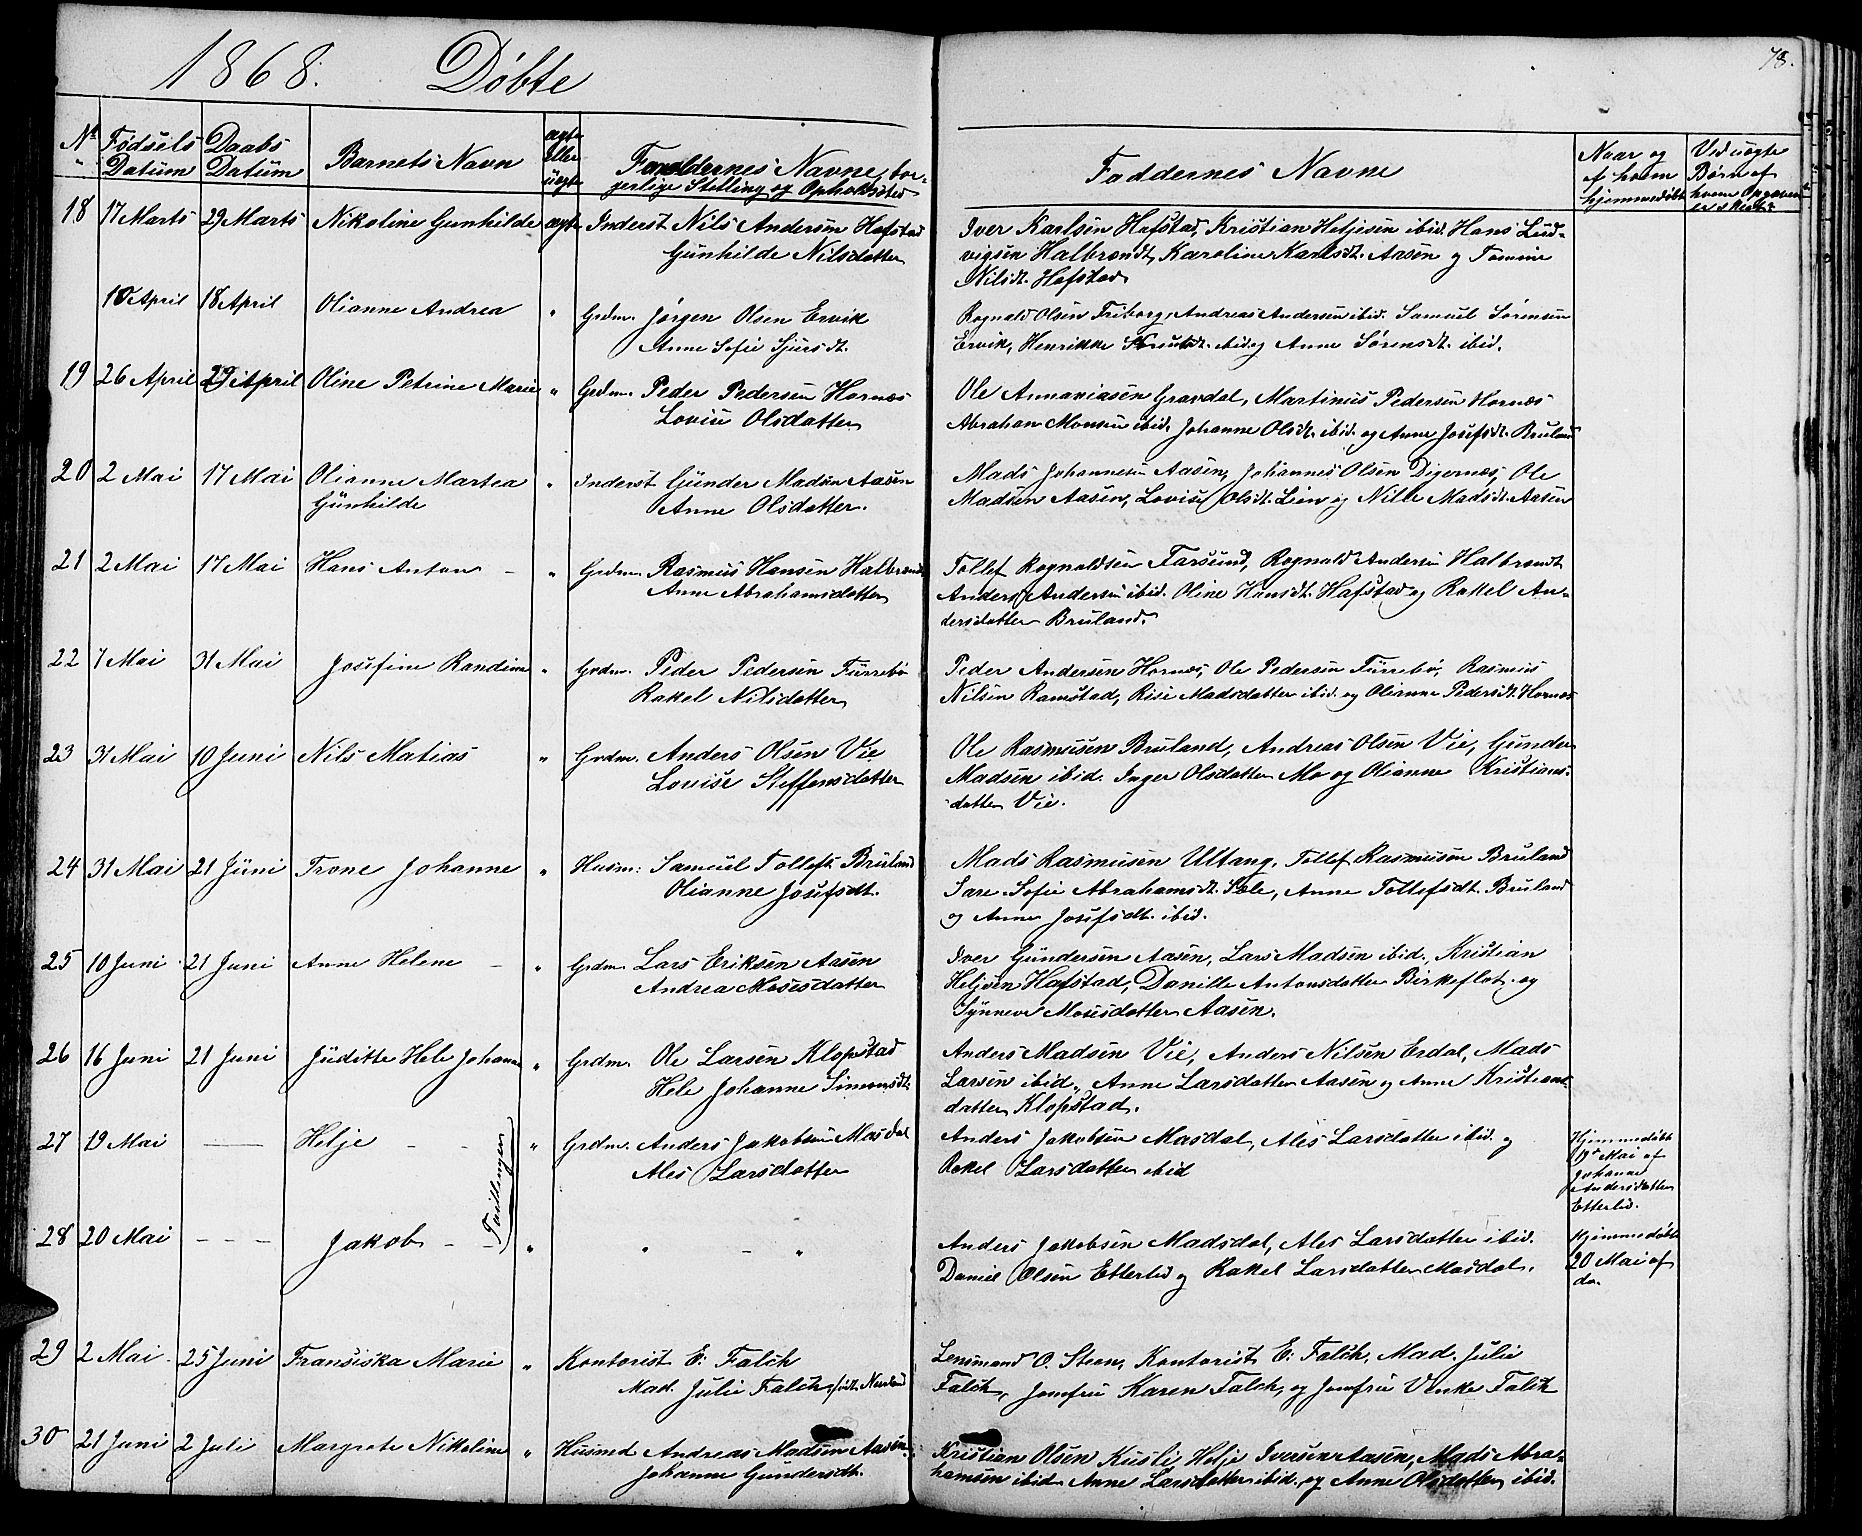 1868. Døbte
78.
No Fødsels Datum
Daabs Datum
Barnets Navn
ægte eller uægte
Forældrenes Navne, bor-
gerlige Stilling og Opholdssted
Faddernes Navne
Naar og af hvem hjemmedøbt
Ved uægte Børn af hvem Opgaven er skeet
18 17 Marts 29 Marts Nikoline Gunhilde ægte Inderst Nils Andersen Hafstad
Gunhilde Nilsdatter
Iver Karlsen Hafstad, Kristian Heljesen ibid. Hans Lud-
vigsen Halbrendt, Karoline Karlsdt. Aasen og Tomine
Nilsdt. Hafstad
10 April 18 April Olianne Andrea " Grdm. Jørgen Olsen Ervik
Anne Sofie Sjursdt.
Rognald Olsen Friborg, Andreas Andersen ibid. Samuel Sørensen
Ervik, Henrikke Knudsdt. ibid. og Anne Sørensdt. ibid.
19 26 April 29 April Oline Petrine Marie " Grdm. Peder Pedersen Hornæs
Lovise Olsdatter
Ole Annaniasen Gravdal, Martinus Pedersen Hornæs
Abraham Monsen ibid. Johanne Olsdt. ibid. og Anne Josefsdt. Bruland
20 2 Mai 17 Mai Olianne Martea " Inderst Gunder Madsen Aasen
Gunhilde Anne Olsdatter.
Mads Johannesen Aasen, Johannes Olsen Digernæs, Ole
Madsen Aasen, Lovise Olsdt. Lien og Nille Madsdt. Aasen
21 2 Mai 17 Mai Hans Anton - " Grdm. Rasmus Hansen Halbrendt
Anne Abrahamsdatter
Tollef Rognaldsen Farsund, Rognald Andersen Halbrendt
Anders Andersen ibid. Oline Hansdt. Hafstad og Rakel An-
dersdatter Bruland.
22 7 Mai 31 Mai Josefine Randine " Grdm. Peder Pedersen Furrebø
Rakel Nilsdatter
Peder Andersen Hornæs, Ole Pedersen Furrebø, Rasmus
Nilsen Ramstad, Rise Madsdatter ibid. og Olianne Pedersdt. Hornæs
23 31 Mai 10 Juni Nils Matias " Grdm. Anders Olsen Vie
Lovise Steffensdatter
Ole Rasmusen Bruland, Andreas Olsen Vie, Gunder
Madsen ibid. Inger Olsdatter Mo og Olianne Kristians-
datter Vie.
24 31 Mai 21 Juni Trone Johanne " Husm: Samuel Tollefs. Bruland
Olianne Josefsdt.
Mads Rasmusen Ultang, Tollef Rasmusen Bruland
Sare Sofie Abrahamsdt. Sole, Anne Tollefsdt. Bruland
og Anne Josefsdt. ibid.
25 10 Juni 21 Juni Anne Helene - " Grdm. Lars Eriksen Aasen
Andrea Mosesdatter
Iver Gundersen Aasen, Lars Madsen ibid., Kristian
Heljesen Hafstad, Danille Antonsdatter Birkeflot og
Synneve Mosesdatter Aasen.
26 16 Juni 21 Juni Juditte Hele Johanne " Grdm. Ole Larsen Klopstad
Hele Johanne Simonsdt.
Anders Madsen Vie, Anders Nilsen Erdal, Mads
Larsen ibid., Anne Larsdatter Aasen og Anne Kristians-
datter Klopstad.
27 19 Mai — Helje - - " Grdm. Anders Jakobsen Masdal
Ales Larsdatter
Tvillinger
Anders Jakobsen Masdal, Ales Larsdatter ibid. og
Rakel Larsdatter ibid
Hjemmedøbt
19de Mai af
Johanne
Andersdatter
Etterlid.
28 20 Mai - - - Jakob - - " " - "
Anders Jakobsen Madsdal, Ales Larsdatter ibid.
Daniel Olsen Etterlid og Rakel Larsdatter Masdal.
Hjemmedøbt
20 Mai af
do.
29 2 Mai 25 Juni Fransiska Marie " Kontorist E: Falch
Mad. Julie Falch, født
Lensmand O. Steen, Kontorist E: Falch, Mad. Julie
Falch, Jomfru Karen Falch, og Jomfru Vinke Falch
30 21 Juni 2 Juli Margrete Nikoline " Husmd Andreas Madsen Aasen
Johanne Gundersdt.
Kristian Olsen Kusli, Helje Iversen Aasen, Mads Abra-
hamsen ibid. Anne Larsdatter ibid. og Anne Olsdatter ibid.